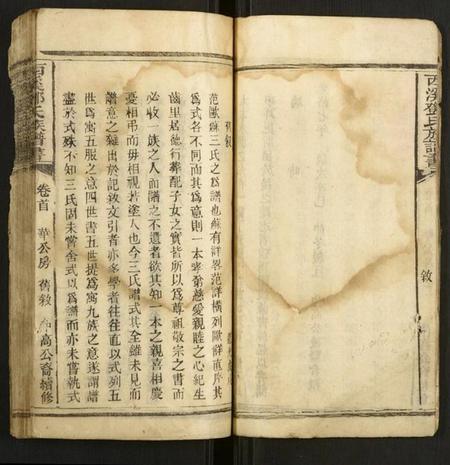 西溪鄧氏族譜書
敘
舊敘
范歐蘇三氏之爲譜也蘇有詳畧范詳橫列歐詳直序其
爲式各不同而其爲意則一本孝弟慈愛親睦之心紀生
齒里居德行葬配子女之實皆所以爲尊祖敬宗之書而
必收一族之人而譜之不遺者欲其知一本之親喜相慶
憂相弔而毋相視若塗人也今三氏譜式其全雖未見而
譜意之雜出於記敘文引者亦多學者往往直以式列五
世爲寓五服之意四世書五世提爲寓九族之意遂謂譜
盡於式殊不知三氏固未嘗舍式以爲譜而亦未嘗執式
西溪鄧氏族譜書
卷首 華公房 舊敘 高公裔續修